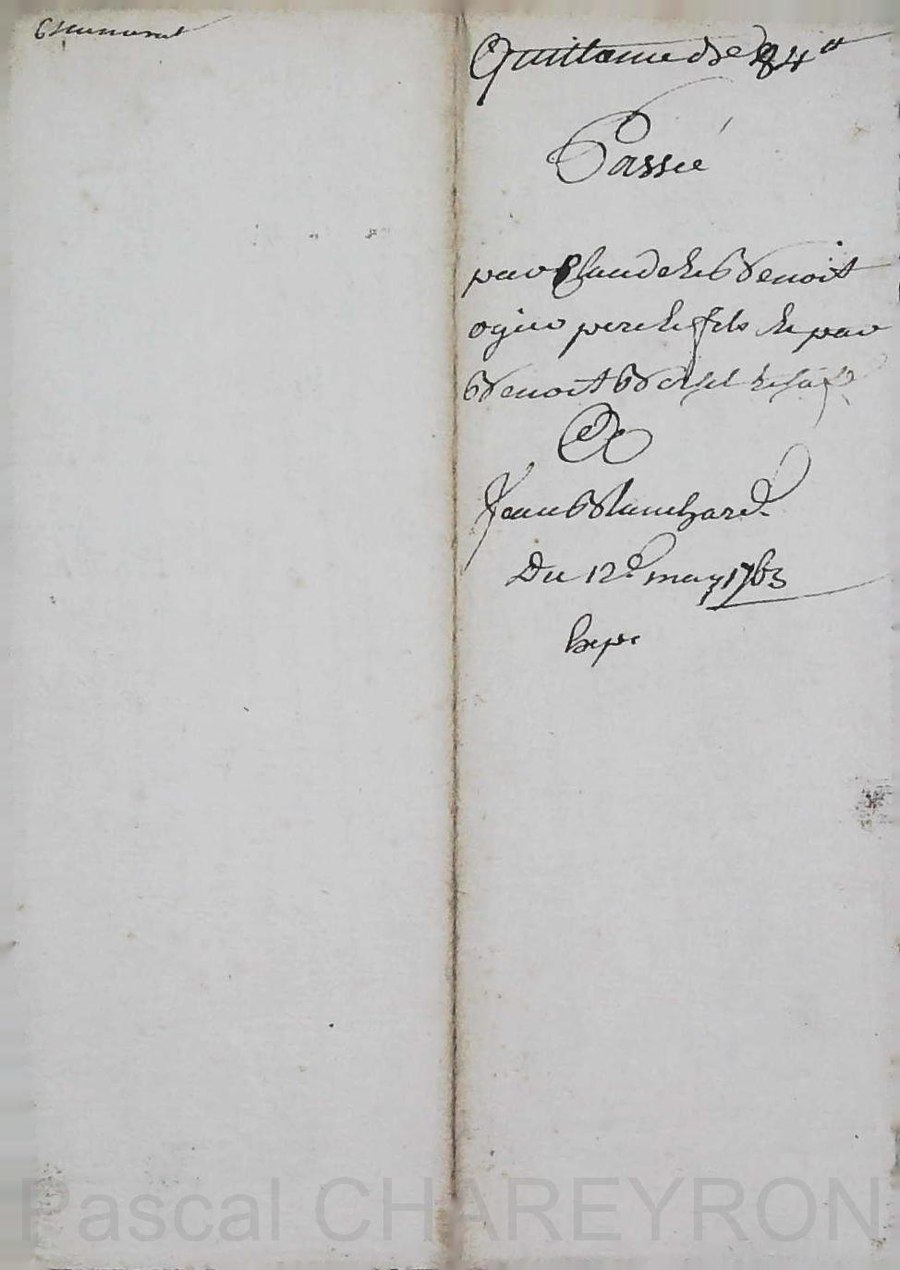 Quittance de 84ᵗᵗ
Passée
par Claude et Benoit
ogier pere et fils et par
Benoit
A
Jean Blanchard
Du 12e may 1763
Pascal CHAREYRON